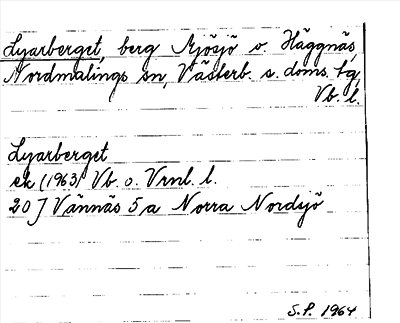 Lyarberget, berg Mjösjö o. Häggnäs,
Nordmalings sn, Västerb. s. doms. tg
Vb. l.
Lyarberget
ek (1963) Vb. o. Vrnl. l.
20 J Vännäs 5 a Norra Nordsjö
S.P. 1964